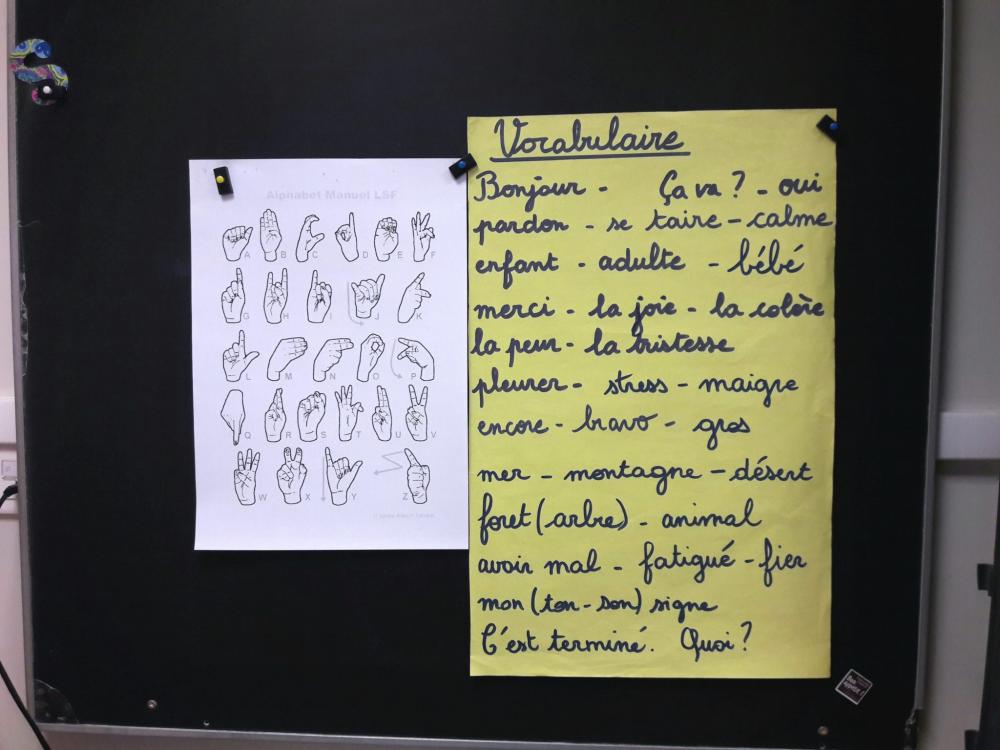 Alphabet Manuel LSF
A B C D E F
G H I J K
L M N O P
Q R S T U V
W X Y Z
Vocabulaire
Bonjour - Ça va ? - oui
pardon - se taire - calme
enfant - adulte - bébé
merci - la joie - la colère
la peur - la tristesse
pleurer - stress - maigre
encore - bravo - gros
mer - montagne - désert
foret (arbre) - animal
avoir mal - fatigué - fier
mon (ton - son) signe
C'est terminé. Quoi ?